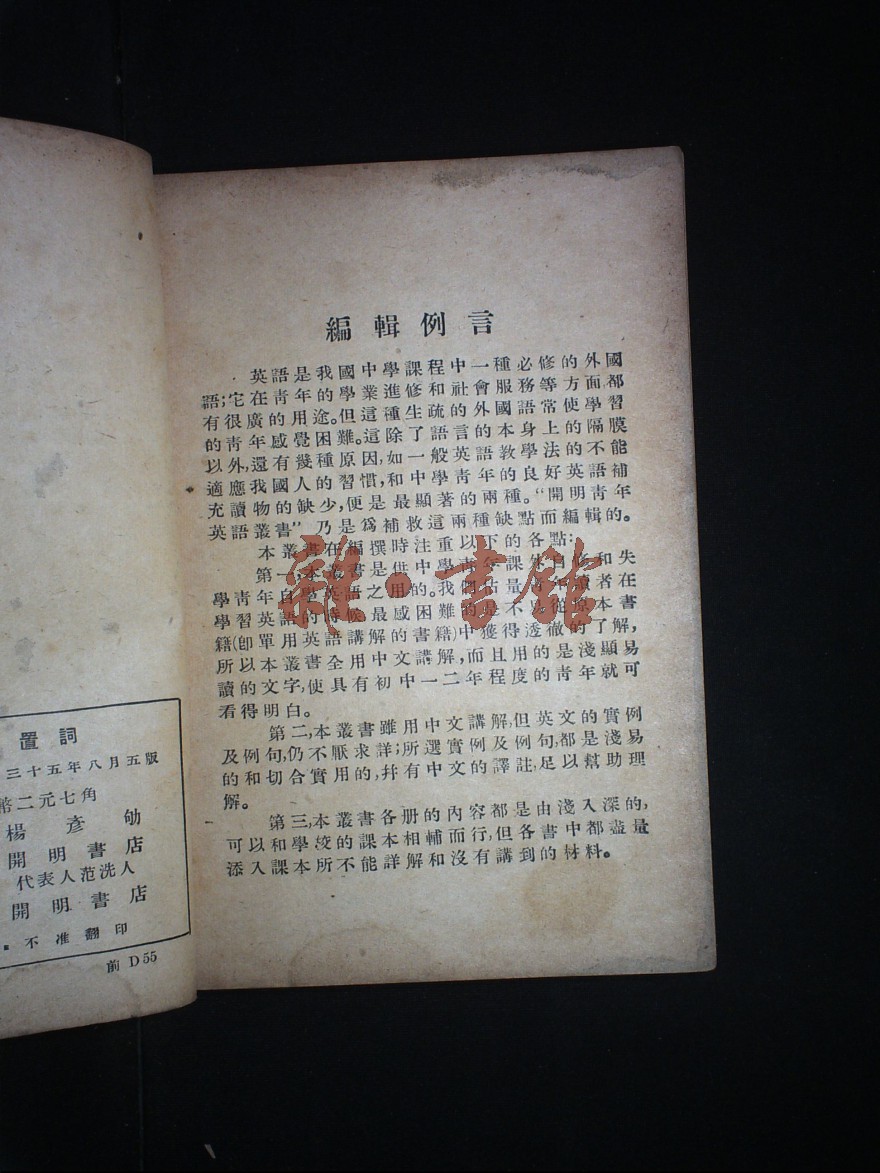 編輯例言
英語是我國中學課程中一種必修的外國
語;它在靑年的學業進修和社會服務等方面,都
有很廣的用途。但這種生疏的外國語常使學習
的靑年感覺困難。這除了語言的本身上的隔膜
以外,還有幾種原因,如一般英語敎學法的不能
適應我國人的習慣,和中學靑年的良好英語補
充讀物的缺少,便是最顯著的兩種。“開明靑年
英語叢書”乃是爲補救這兩種缺點而編輯的。
本叢書在編撰時注重以下的各點:
第一,本叢書是供中學靑年課外自修和失
學靑年自學英語之用的。我們估量靑年讀者在
學習英語的時候最感困難的是不易從原本書
籍(卽單用英語講解的書籍)中獲得透徹的了解,
所以本叢書全用中文講解,而且用的是淺顯易
讀的文字,使具有初中一二年程度的靑年就可
看得明白。
第二,本叢書雖用中文講解,但英文的實例
及例句,仍不厭求詳;所選實例及例句,都是淺易
的和切合實用的,幷有中文的譯註,足以幫助理
解。
第三,本叢書各册的內容都是由淺入深的,
可以和學校的課本相輔而行,但各書中都盡量
添入課本所不能詳解和沒有講到的材料。
置詞
三十五年八月五版
幣二元七角
楊彥劬
開明書店
代表人范洗人
開明書店
不准翻印
前 D55
雜·書館